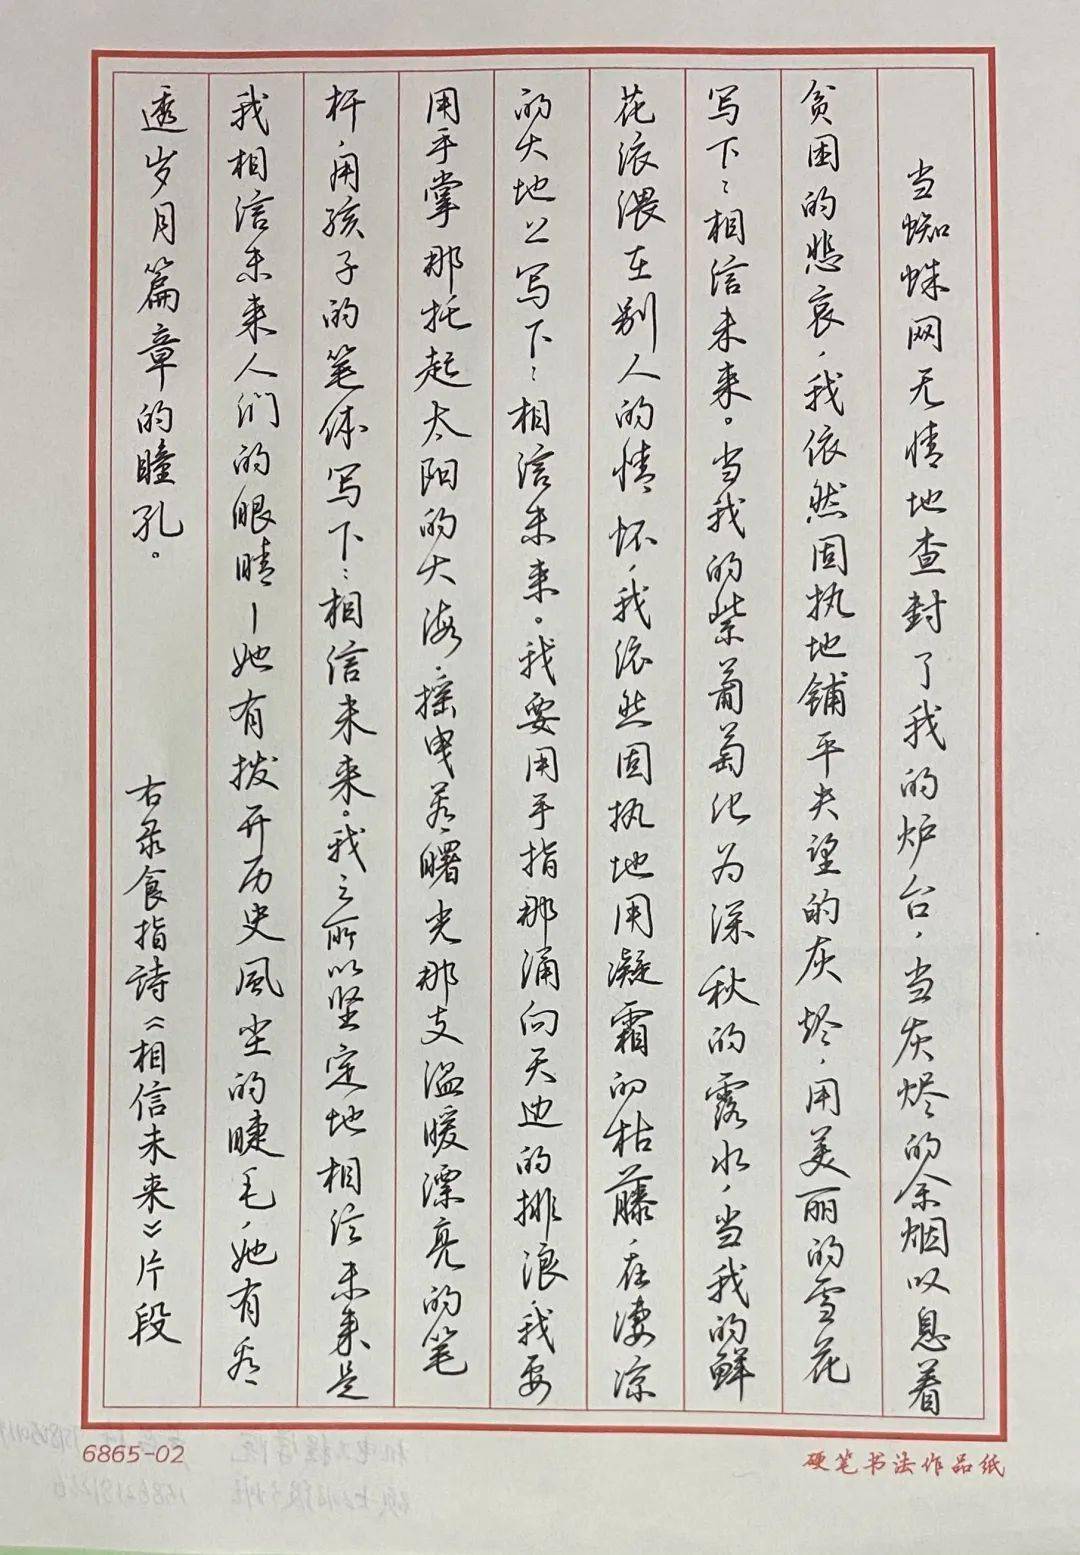 当蜘蛛网无情地查封了我的炉台，当灰烬的余烟叹息着
贫困的悲哀，我依然固执地铺平失望的灰烬，用美丽的雪花
写下：相信未来。当我的紫葡萄化为深秋的露水，当我的鲜
花依偎在别人的情怀，我依然固执地用凝霜的枯藤，在凄凉
的大地上写下：相信未来。我要用手指那涌向天边的排浪，我要
用手掌那托起太阳的大海，摇曳着曙光那支温暖漂亮的笔
杆，用孩子的笔体写下：相信未来。我之所以坚定地相信未来是
我相信未来人们的眼睛—她有拨开历史風尘的睫毛，她有看
透岁月篇章的瞳孔。
右录食指詩《相信未来》片段
6865-02
硬笔书法作品纸